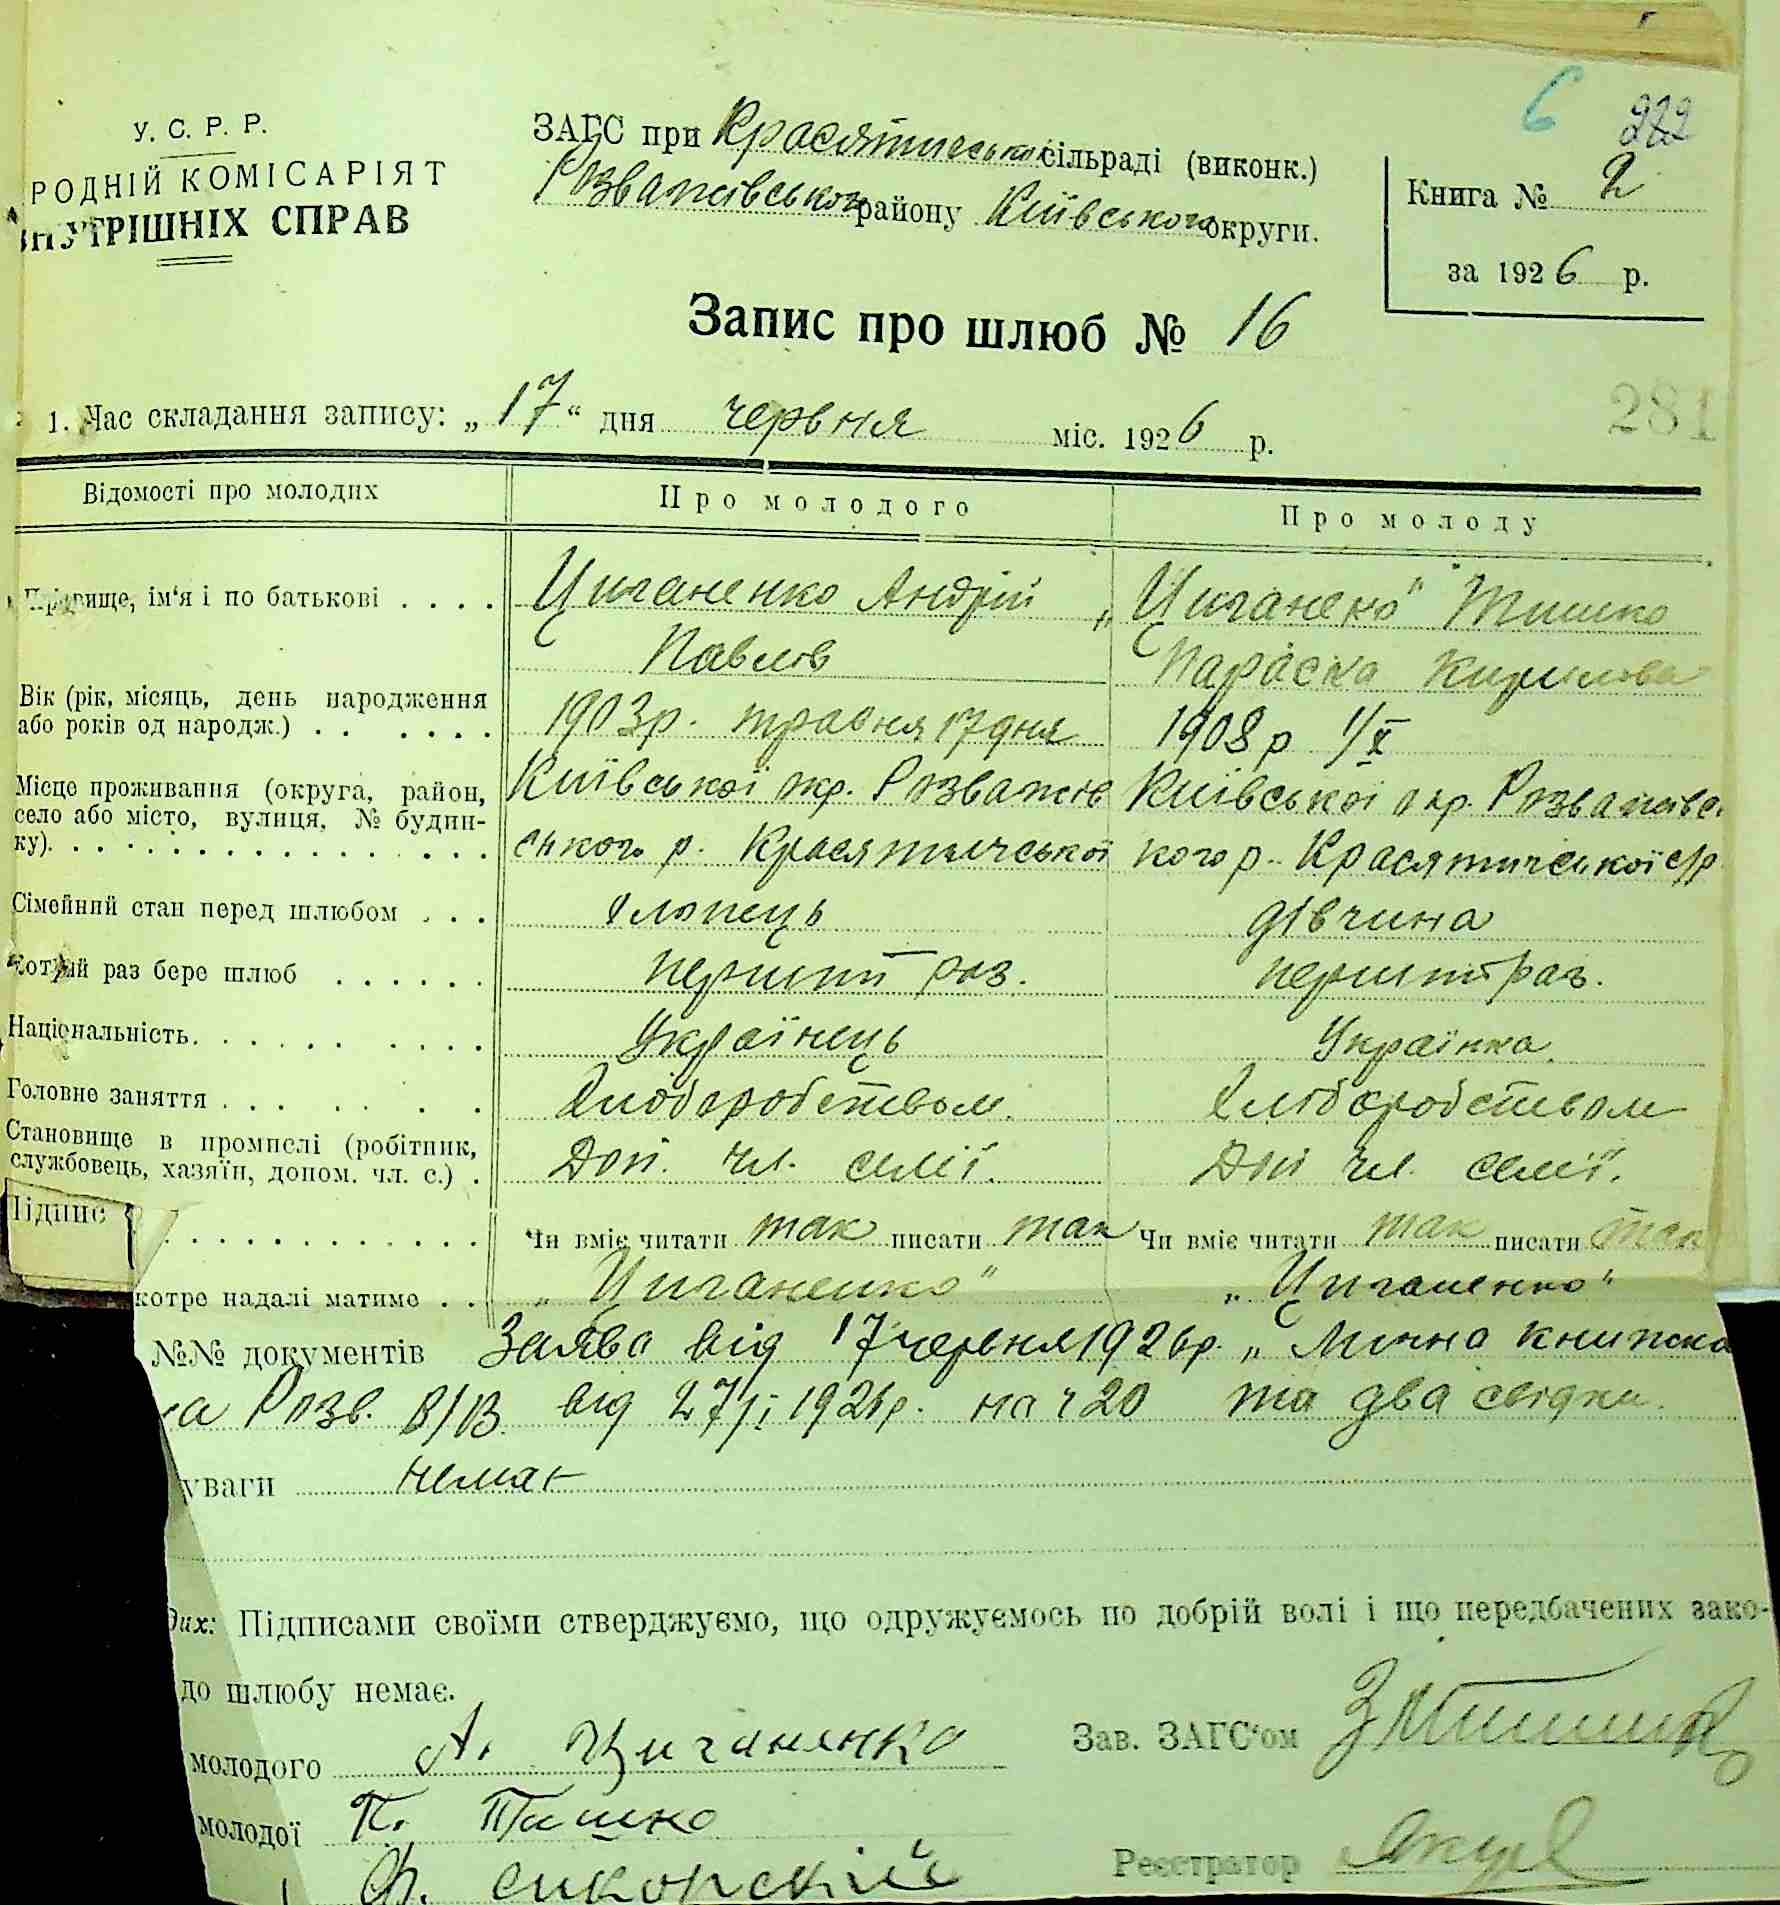 6 222
У. С. Р. Р.
РОДНІЙ КОМІСАРІЯТ
ВНУТРІШНІХ СПРАВ
ЗАГС при Красятической сільраді (виконк.)
Розважівського району Київського округи.
Книга № 2
за 1926 р.
Запис про шлюб № 16
281
1. Час складання запису: „17“ дня червня міс. 1926 р.
Відомості про молодих Про молодого Про молоду
Прізвище, ім'я і по батькові . . . . Циганенко Андрій „Циганеко" Тишко
Павлів Параска Кирилова
Вік (рік, місяць, день народження
або років од народж.) . . . . . . 1903р. травня 17 дня 1908 р 1/X
Місце проживання (округа, район, Київської окр. Розважів Київської окр. Розважівс
село або місто, вулиця, № будин-
ку). . . . . . . . . . . . . ського р. Красятичської кого р. Красятичської с/р
Сімейний стан перед шлюбом . . . хлопець дівчина
Котрий раз бере шлюб . . . . . . перший раз. перший раз.
Національність. . . . . . . . . . Українець Українка.
Головне заняття . . . . . . Хліборобством. Хліборобством
Становище в промислі (робітник,
службовець, хазяїн, допом. чл. с.) . Доп. чл. семії. Доп чл. семії.
Підпис
. . . . . . . . . . . . Чи вміє читати так писати так Чи вміє читати так писати так
котре надалі матиме . . „Циганенко" „Циганенко"
№№ документів Заява від 17 червня 1926р. „Лічна книжка
Розв. В/В. від 27/I 1926р. на ч 20 та два свідки.
уваги немає
дих: Підписами своїми стверджуємо, що одружуємось по добрій волі і що передбачених зако-
до шлюбу немає.
молодого А. Циганенко Зав. ЗАГС'ом
молодої П. Тишко
Реєстратор
Ф. Сикорский